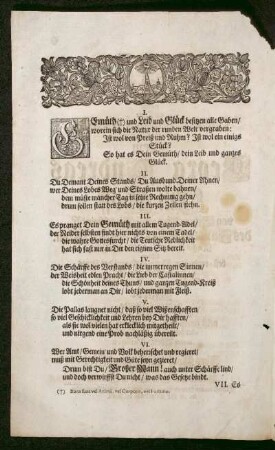 I.
GEmüth(†) und Leib und Glück besitzen alle Gaben/
worein sich die Natur der runden Welt vergraben:
Ist wol von Preiß und Ruhm? Ist wol ein einigs
Stück?
So hat es Dein Gemüth/ dein Leib und gantzes
Glück.
II.
Du Demant Deines Stands/ Du Ausbund Deiner Ahnen/
wer Deines Lobes Weg und Strassen wolte bahnen/
dem müste mancher Tag in seine Rechnung gehn/
drum sollen statt des Lobs/ die kurtzen Zeilen stehn.
III.
Es pranget Dein Gemüth mit allem Tugend-Adel/
der Neider selbsten findt hier nichts von einem Tadel/
die wahre Gottesfurcht/ die Teutsche Redlichkeit
hat sich fast nur in Dir den reinen Sitz bereit.
IV.
Die Schärffe des Verstands/ die immerregen Sinnen/
der Weisheit edlen Pracht/ die Lieb der
die Schönheit deines Thuns/ und gantzen Tugend-Kreiß
lobt jederman an Dir/ lobt jederman mit Fleiß.
V.
Die Pallas laugnet nicht/ daß so viel Wissenschafften
so viel Geschicklichkeit und Lehren bey Dir hafften/
als sie wol vielen hat erklecklich mitgetheilt/
und nirgend eine Prob nachläßig übereilt.
VI.
Wer Amt/ Gemein und Volk beherrschet und regieret/
muß mit Gerechtigkeit und Güte seyn gezieret/
Drum bist Du/ Großer Mann! auch unter Schärffe lind/
und doch verwirffst Du nicht/ was das Gesetze bindt.
VII. Es
(†) Bona sunt vel Animi, vel Corporis, vel Fortunæ.